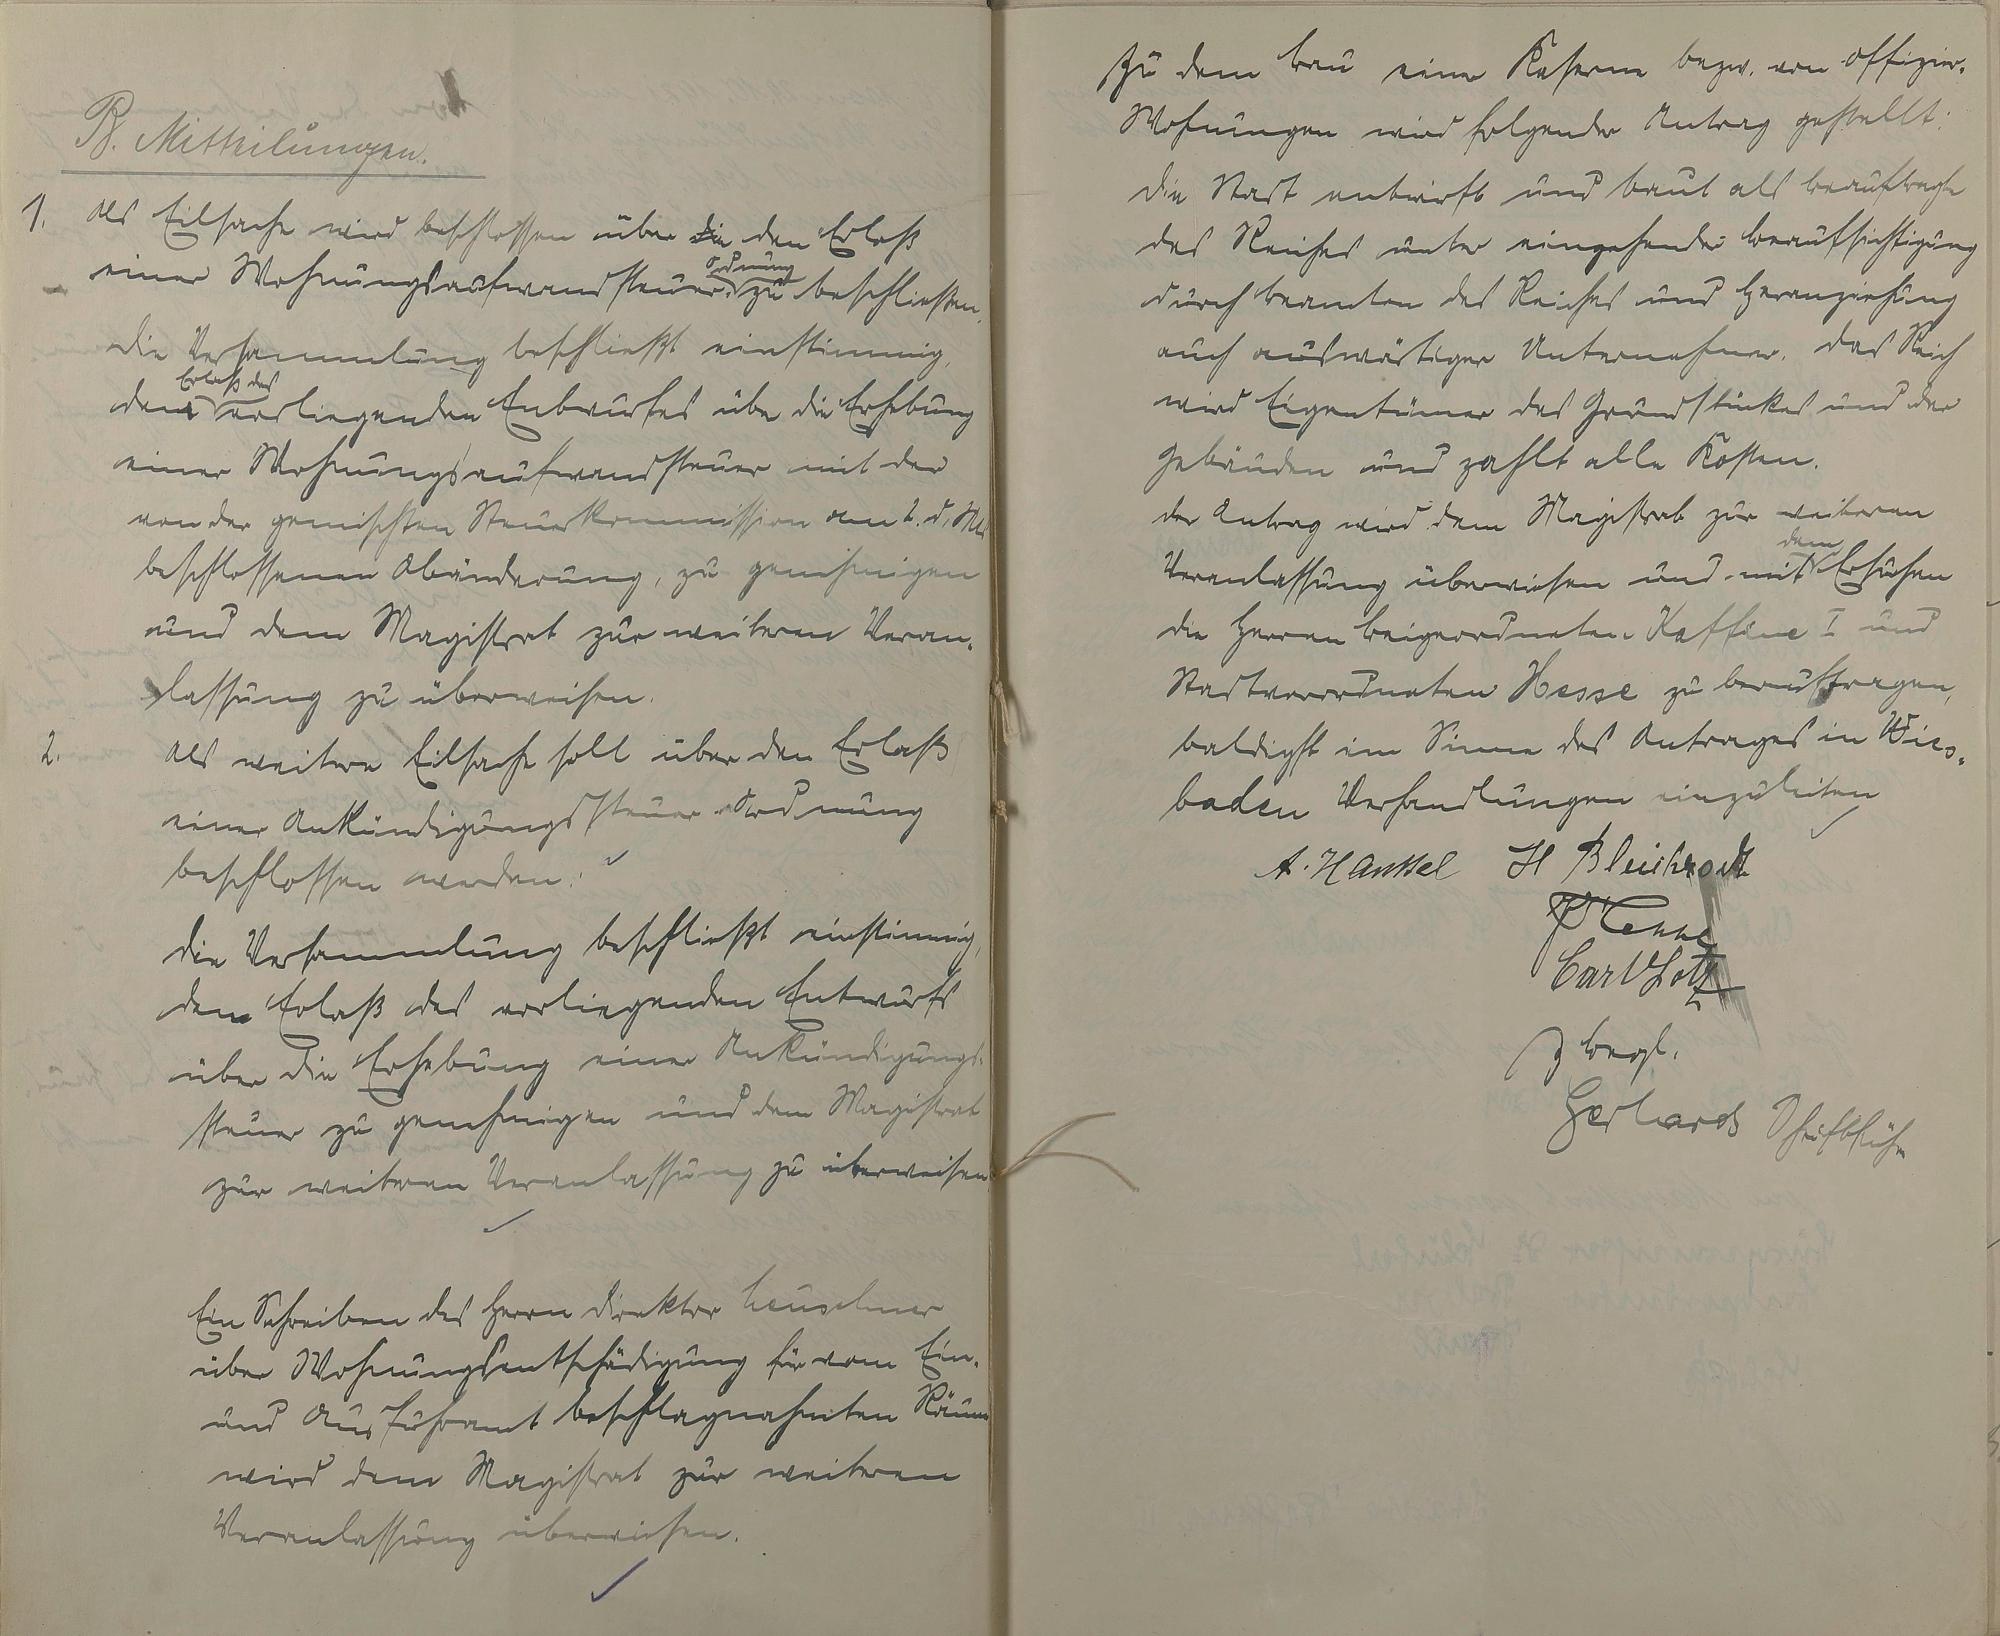 B. Mitteilungen.
1. Als Eilsache wird beschlossen über die den Erlaß
einer Wohnungsaufwandsteuer-Ordnung zu beschließen.
Die Versammlung beschließt einstimmig,
den Erlaß des vorliegenden Entwurfes über die Erhebung
einer Wohnungsaufwandsteuer mit der
von der gemischten Steuerkommission am 2. d. Mts
beschlossenen Abänderung, zu genehmigen
und dem Magistrat zur weiteren Veran-
lassung zu überweisen.
2. Als weitere Eilsache soll über den Erlaß
einer Ankündigungssteuer-Ordnung
beschlossen werden.
Die Versammlung beschließt einstimmig,
den Erlaß des vorliegenden Entwurfs
über die Erhebung einer Ankündigungs-
steuer zu genehmigen und dem Magistrat
zur weiteren Veranlassung zu überweisen
Ein Schreiben des Herrn Direktor Heuschmer
über Wohnungsentschädigung für vom Ein-
und Ausfuhramt beschlagnahmten Räume
wird dem Magistrat zur weiteren
Veranlassung überwiesen.
Zu dem Bau einer Kaserne bezw. von Offizier-
Wohnungen wird folgender Antrag gestellt:
Die Stadt entwirft und baut als Beauftragte
des Reiches unter eingehender Beaufsichtigung
durch Beamten des Reiches und Heranziehung
auch auswärtiger Unternehmer. Das Reich
wird Eigentümer des Grundstückes und der
Gebäuden und zahlt alle Kosten.
Der Antrag wird dem Magistrat zur weiteren
Veranlassung überwiesen und mit dem Ersuchen
die Herren Beigeordneten Kaffine I und
Stadtverordneten Hesse zu beauftragen,
baldigst im Sinne des Antrages in Wies-
baden Verhandlungen einzuleiten
A. Hankel H Bleichrodt
Carl Lotz
Begl.
Gerhards Schriftführer